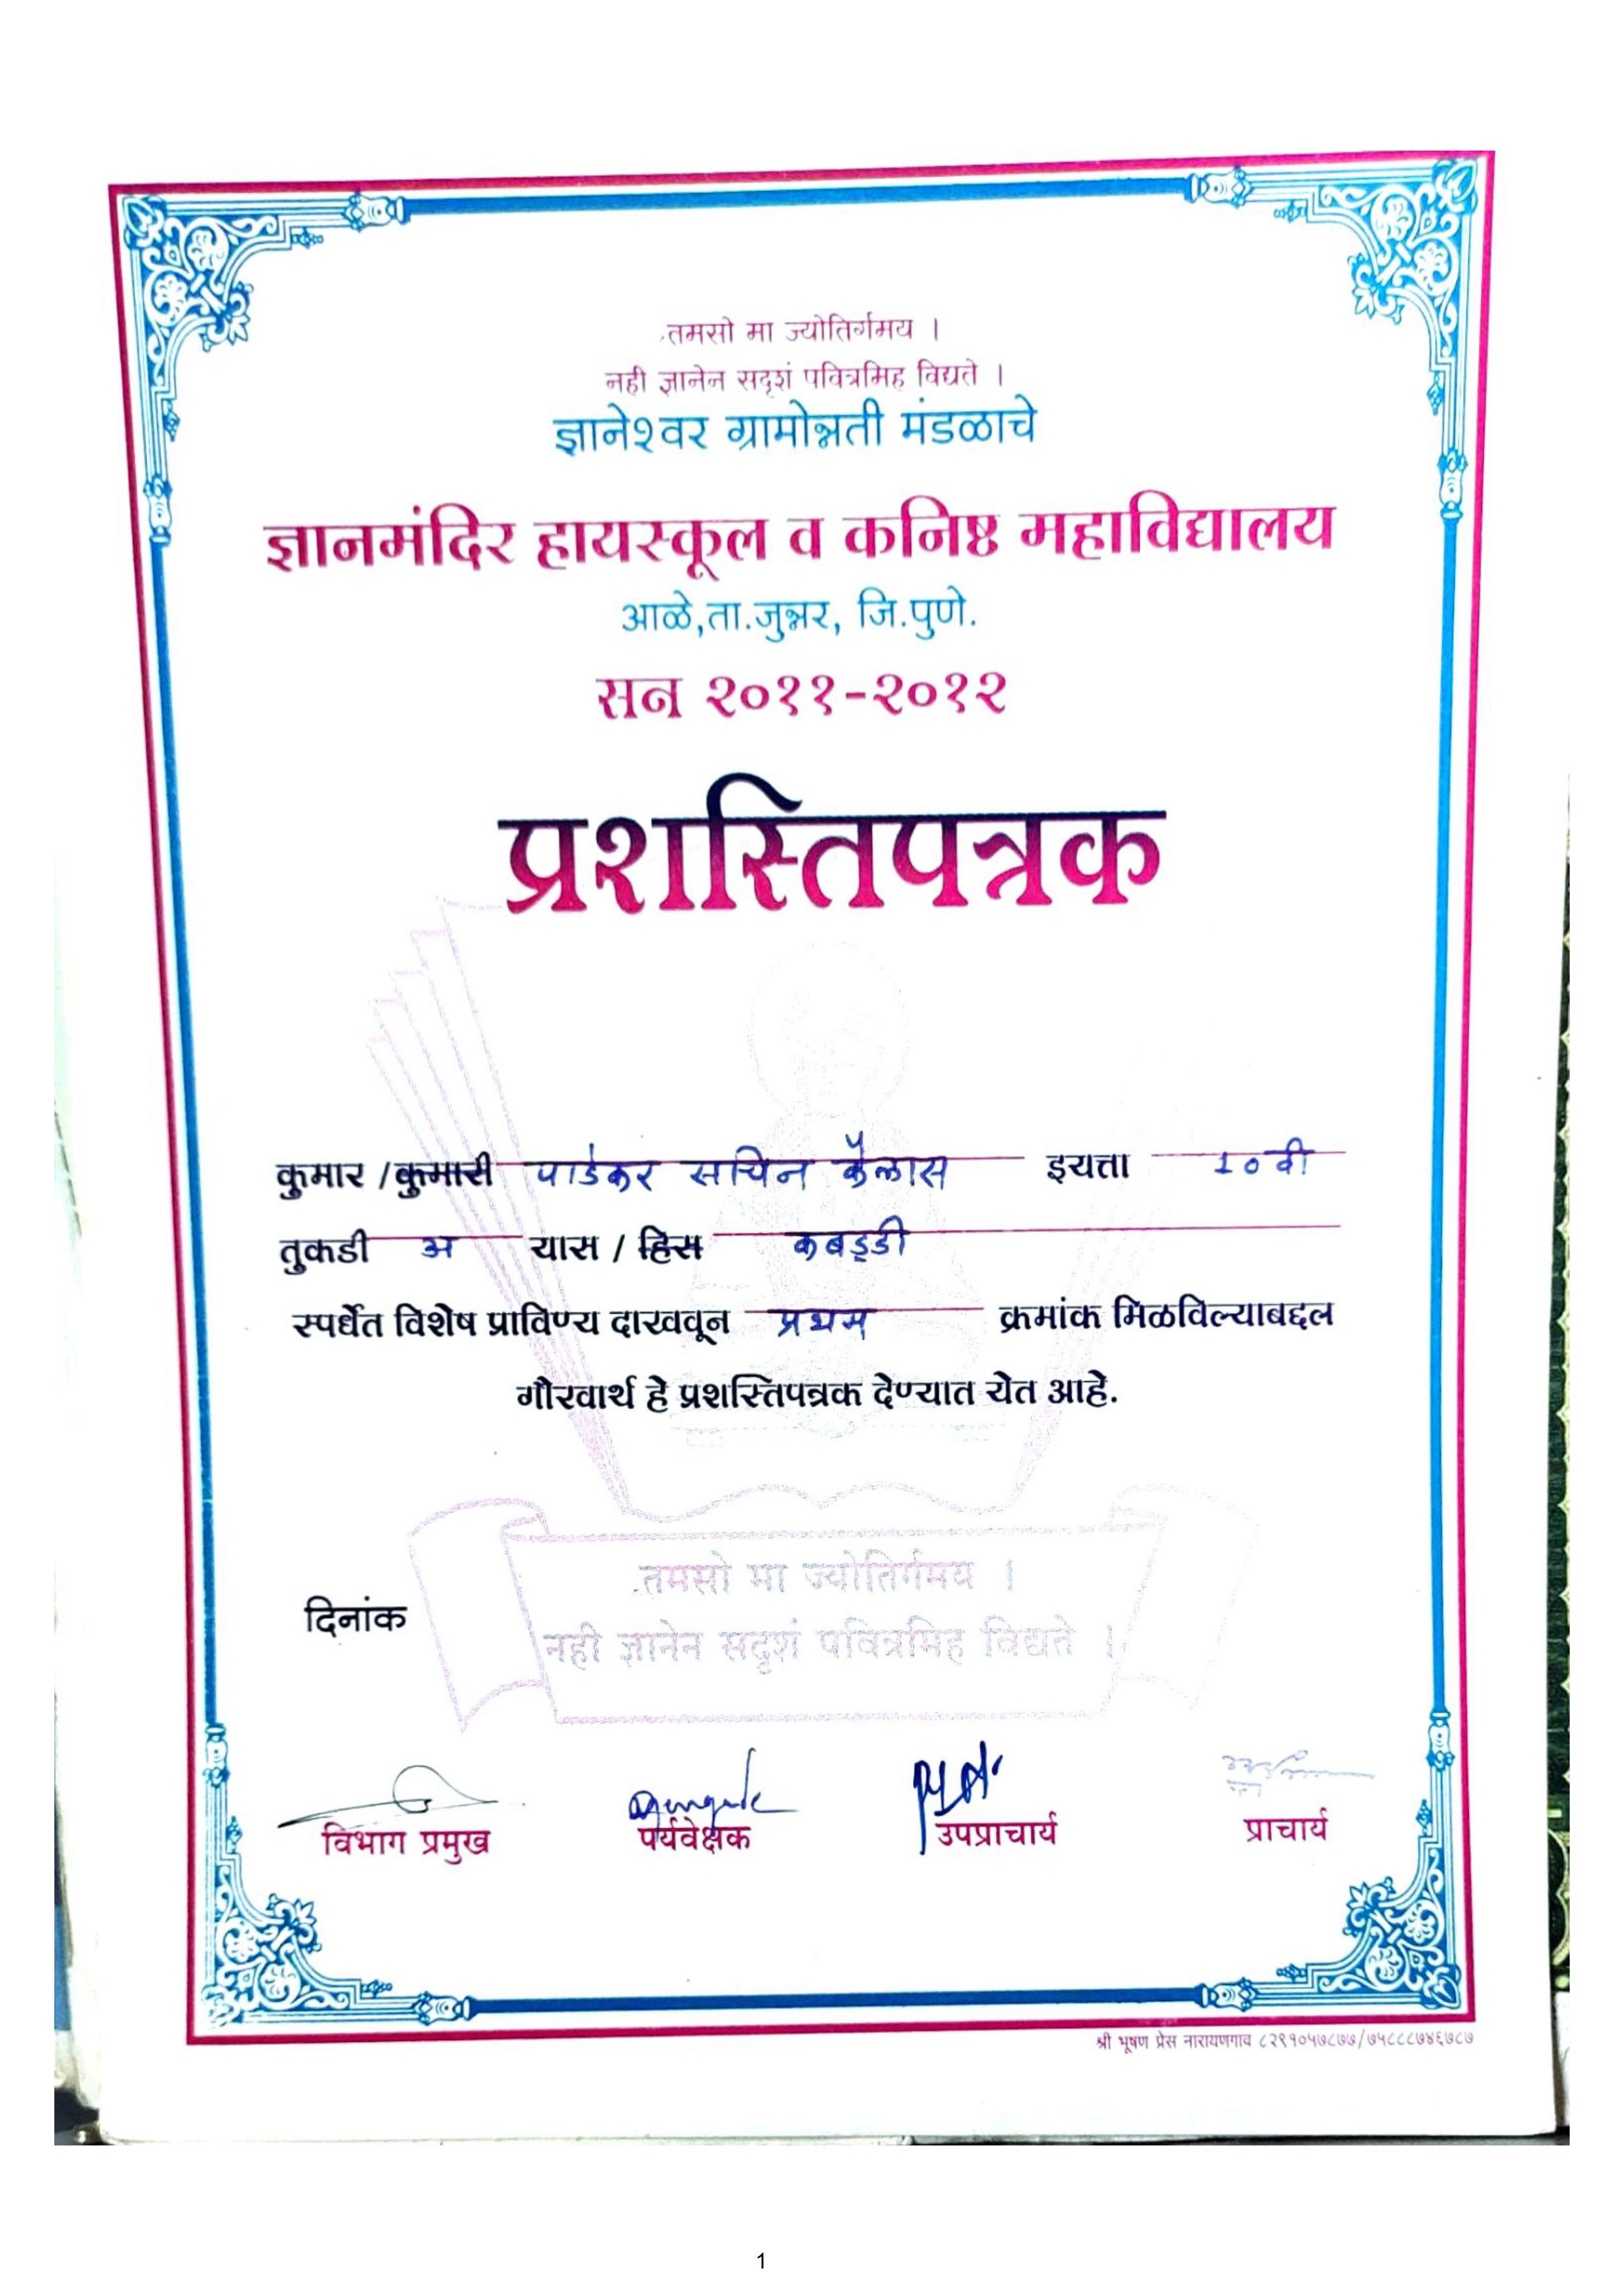 तमसो मा ज्योतिर्गमय ।
नही ज्ञानेन सदृशं पवित्रमिह विद्यते ।
ज्ञानेश्वर ग्रामोन्नती मंडळाचे
ज्ञानमंदिर हायस्कूल व कनिष्ठ महाविद्यालय
आळे,ता.जुन्नर, जि.पुणे.
सन २०११-२०१२
प्रशस्तिपत्रक
कुमार /कुमारी पाडेकर सचिन कैलास इयत्ता 10 वी
तुकडी अ यास / हिस कबड्डी
स्पर्धेत विशेष प्राविण्य दाखवून प्रथम क्रमांक मिळविल्याबद्दल
गौरवार्थ हे प्रशस्तिपत्रक देण्यात येत आहे.
तमसो मा ज्योतिर्गमय ।
नही ज्ञानेन सदृशं पवित्रमिह विद्यते ।
दिनांक
विभाग प्रमुख पर्यवेक्षक उपप्राचार्य प्राचार्य
श्री भूषण प्रेस नारायणगाव ८२९१०५७८७७/७५८८८७४६७८७
1